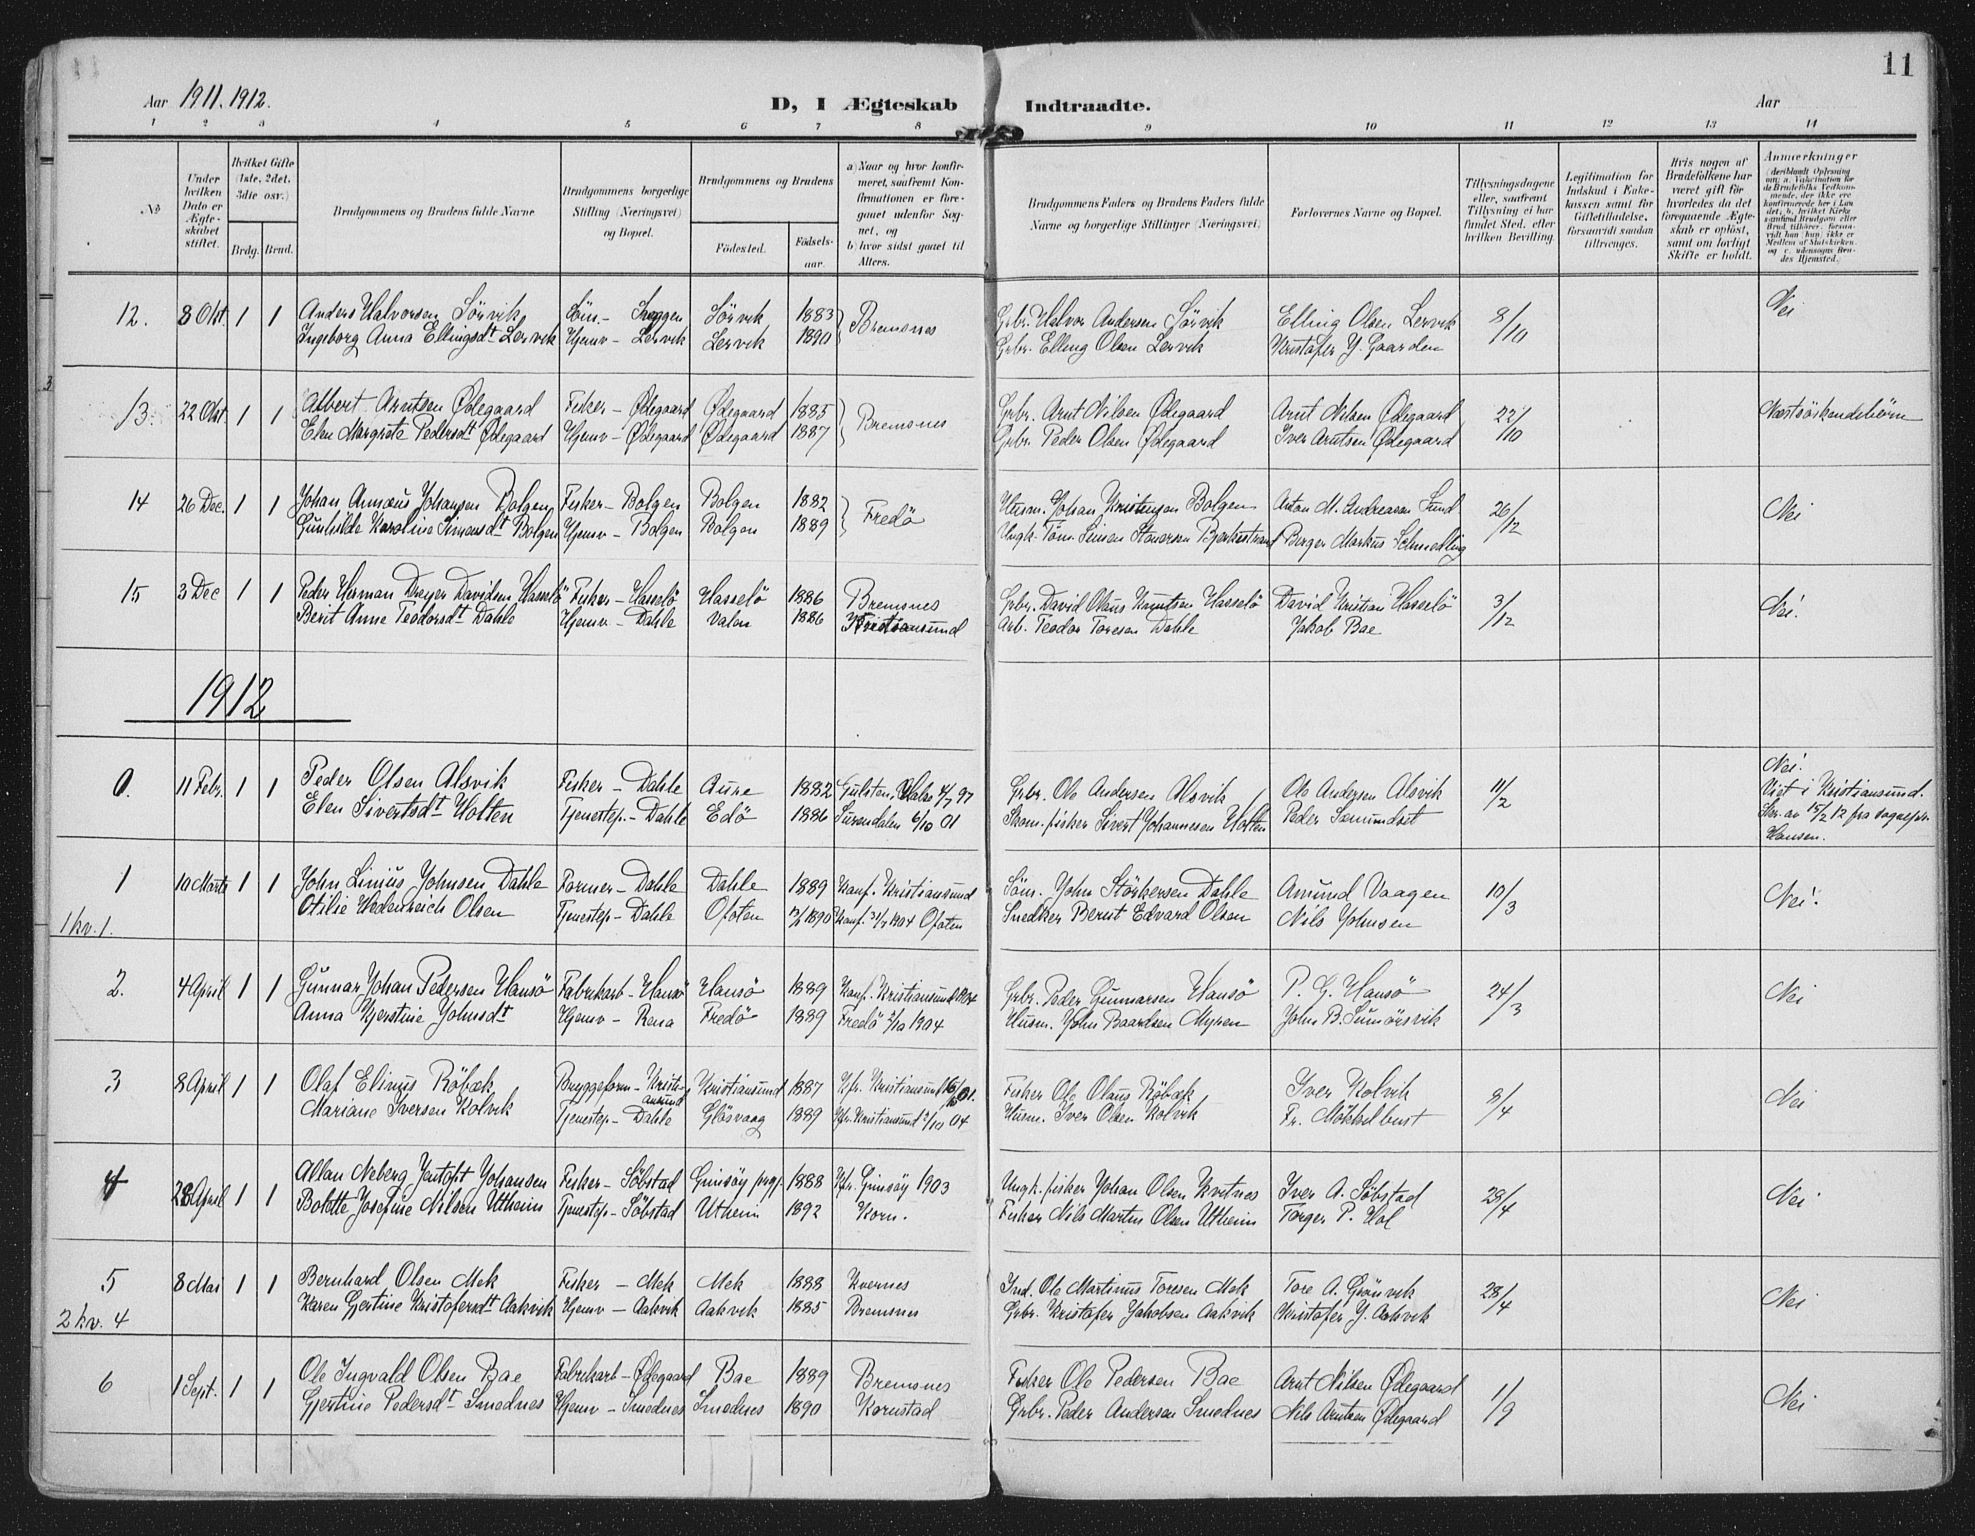 11
Aar 1911. 1912.
D, I Ægteskab Indtraadte.
Aar
1 2 3 4 5 6 7 8 9 10 11 12 13 14
No
Under hvilken Dato er Ægteskabet stiftet.
Hvilket Gifte (1ste, 2det, 3die osv.)
Brdg. Brud.
Brudgommens og Brudens fulde Navne
Brudgommens borgerlige Stilling (Næringsvei) og Bopæl.
Brudgommens og Brudens
Fødested.
Fødselsaar.
a) Naar og hvor konfirmeret, saafremt Konfirmationen er foregaaet udenfor Sognet, og
b) hvor sidst gaaet til Alters.
Brudgommens Faders og Brudens Faders fulde Navne og borgerlige Stillinger (Næringsvei)
Forlovernes Navne og Bopæl.
Tillysningsdagene eller, saafremt Tillysning ei har fundet Sted, efter hvilken Bevilling.
Legitimation for Indskud i Enkekassen samt for Giftetilladelse, forsaavidt saadan tiltrænges.
Hvis nogen af Brudefolkene har været gift før hvorledes da det foregaaende Ægteskab er opløst, samt om lovligt Skifte er holdt.
Anmerkninger
12. 8 Okt. 1 1 Anders Halvorsen Sörvik Sön. - Sörvik 1883 Bremsnes Grbr. Halvor Andersen Sörvik Elling Olsen Lervik 8/10 Nei
Ingeborg Anna Ellingsdt Lervik Hjemv - Lervik Lervik 1890 Grbr. Elling Olsen Lervik Kristofer J. Gaarden
13. 22 Okt. 1 1 Albert Arntsen Ødegaard Fisker - Ødegaard Ødegaard 1885 Bremsnes Grbr. Arnt Nilsen Ødegaard Arnt Nilsen Ødegaard 22/10 Næstsöskendebörn
Elen Margrete Pedersdt Ødegaard Hjemv - Ødegaard Ødegaard 1887 Grbr. Peder Olsen Ødegaard Iver Arntsen Ødegaard
14 26 Dec. 1 1 Johan Annæus Johansen Bolgen Fisker - Bolgen Bolgen 1882 Fredö Husm. Johan Kristensen Bolgen Anton M. Andreasen Sund 26/12 Nei
Gunhilde Karoline Simonsdt Bolgen Hjemv - Bolgen Bolgen 1889 Ungk. Töm. Simon Bjerkestrand Berger Markus Schmedling
15 3 Dec 1 1 Peder Herman Dreyer Davidsen Hasselö Fisker - Hasselö Hasselö 1886 Bremsnes Grbr. David Olaus Knutsen Hasselö David Kristian Hasselö 3/12 Nei!
Berit Anne Teodorsdt Dahle Hjemv - Dahle Valen 1886 Kristiansund Arb. Teodor Toresen Dahle Jakob Bae
1912
0. 11 Febr. 1 1 Peder Olsen Alsvik Fisker - Dahle Aure 1882 Halse 4/7 97 Grbr. Ole Andersen Alsvik Ole Andersen Alsvik 11/2 Nei!
Elen Sivertsdt Holten Tjenestep. - Dahle Edö 1886 Surendalen 6/10 01 Skom. fisker Sivert Johannesen Holten Peder Samundset
Viet i Kristiansund.
Skr. av 15/2 12 fra sognepr. Hansen.
1 10 Marts 1 1 John Linius Johnsen Dahle Former - Dahle Dahle 1889 Konf. Kristiansund Söm. John Störkersen Dahle Amund Vaagen 10/3 Nei!
Otilie Hedenreich Olsen Tjenestep - Dahle Ofoten 1890 Konf. 1904 Ofoten Snedker Bernt Edvard Olsen Nils Johnsen
1 kv. 1.
2. 4 April 1 1 Gunnar Johan Pedersen Hansö Fabrikarb - Hansö Hansö 1889 Konf. Kristiansund 1904 Grbr. Peder Gunnarsen Hansö P. G. Hansö 24/3 Nei
Anna Kjerstine Johnsdt Hjemv - Rena Fredö 1889 Fredö 2/10 1904 Husm. John Baardsen Myren John B. Sumörsvik
3 8 April 1 1 Olaf Elinus Röbæk Bryggeform - Kristiansund Kristiansund 1887 Kfr. Kristiansund 01. Fisker Ole Olaus Röbæk Iver Kolvik 8/4 Nei
Mariane Iversen Kolvik Tjenestep - Dahle Glösvaag 1889 Kfr. Kristiansund 2/10 04 Husm. Iver Olsen Kolvik Fr. Mökkelbust
4 28 April 1 1 Allan Neberg Jentoft Johansen Fisker - Söbstad Gimsöy prgj. 1888 Kfr. Gimsöy 1903 Ungk. fisker Johan Olsen Kvitnes Iver A. Söbstad 28/4 Nei
Bolotte Josefine Nilsen Utheim Tjenestep - Söbstad Utheim 1892 Korn. Fisker Nils Martin Olsen Utheim Torger P. Hol
5 8 Mai 1 1 Bernhard Olsen Mek Fisker - Mek Mek 1888 Kvernes Ind. Ole Martinus Toresen Mek Tore A. Grönvik 28/4 Nei
Karen Gjertine Kristofersdt Aakvik Hjemv - Aakvik Aakvik 1885 Bremsnes Grbr. Kristofer Jakobsen Aakvik Kristofer J. Aakvik
2 kv. 4
6 1 Sept. 1 1 Ole Ingvald Olsen Bae Fabrikarb - Ødegaard Bae 1889 Bremsnes Fisker Ole Pedersen Bae Arnt Nilsen Ødegaard 1/9 Nei
Gjertine Pedersdt Smednes Hjemv - Smednes Smednes 1890 Kornstad Grbr. Peder Andersen Smednes Nils Arntsen Ødegaard